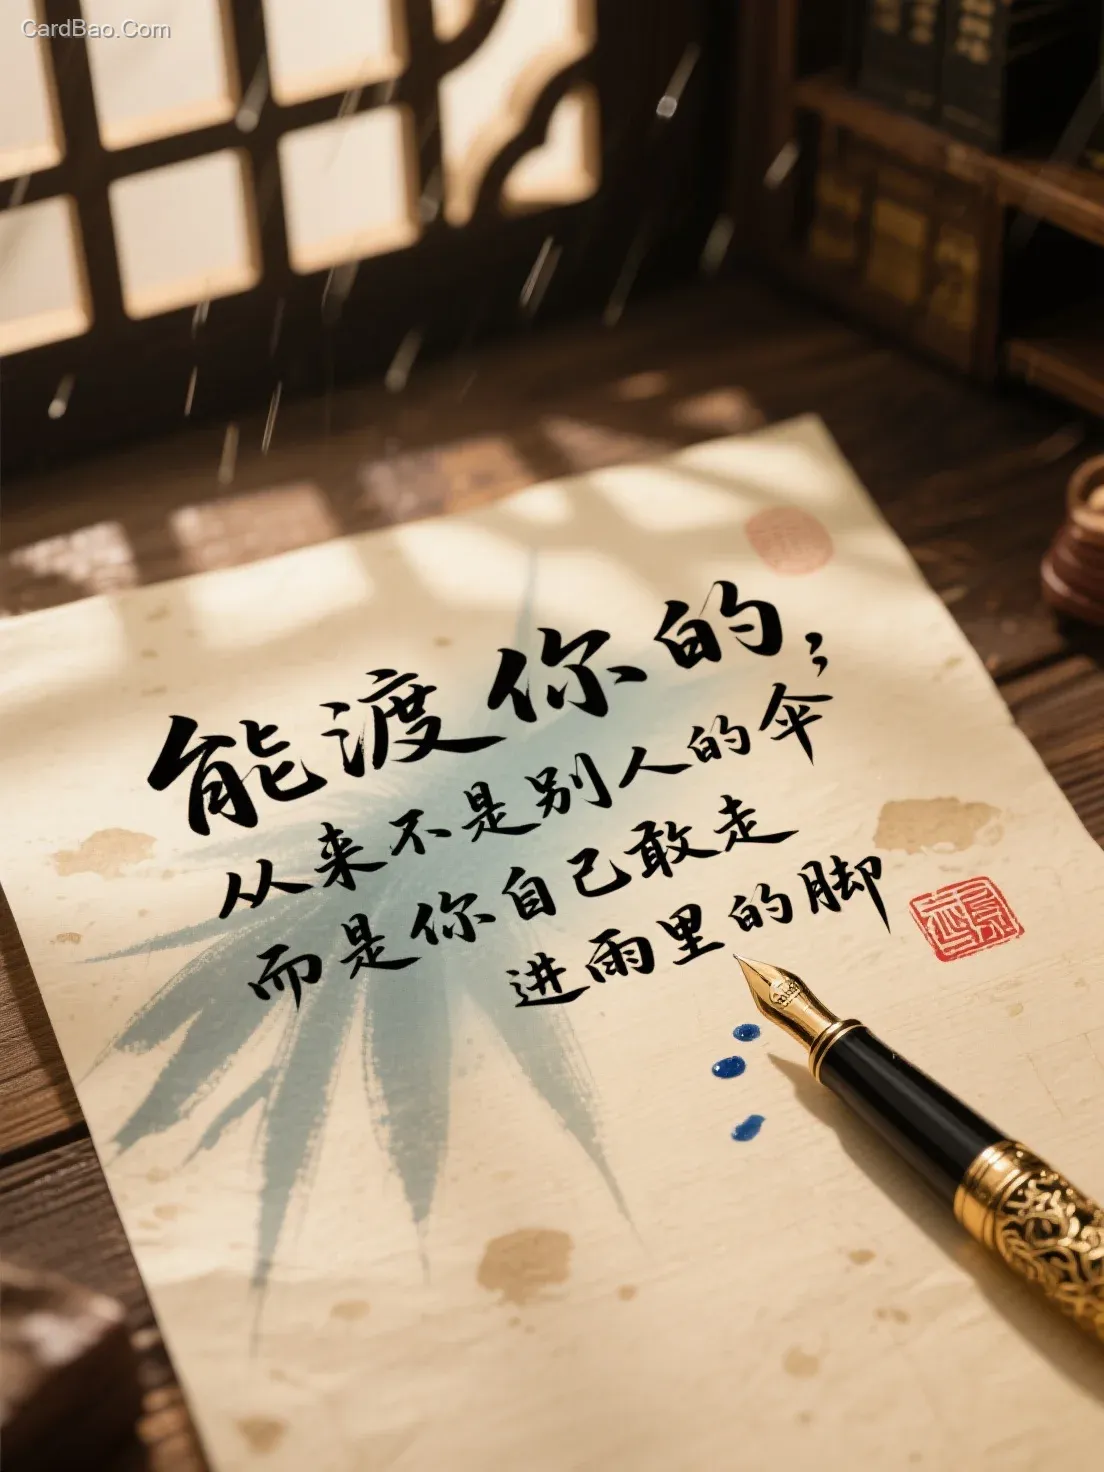 CardBao.Com
能渡你的；
从来不是别人的伞
而是你自己敢走
进雨里的脚